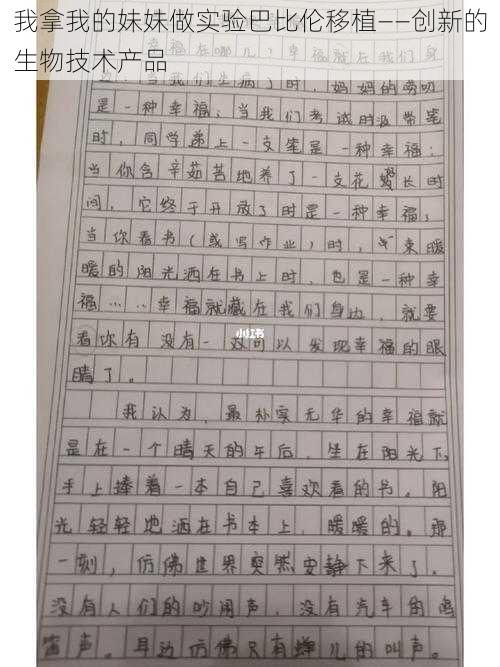 我拿我的妹妹做实验巴比伦移植——创新的
生物技术产品
幸福在哪儿，幸福就在我们身
边。当我们生病了时，妈妈的劳叨
是一种幸福；当我们考试时没带笔
时，同学递上一支笔是一种幸福；
当你含辛茹苦地养了一支花，长时
间，它终于开放了时是一种幸福；
当你看书（或写作业）时，一束暖
暖的阳光洒在书上时，也是一种幸
福……幸福就藏在我们身边，就要
看你有没有一双可以发现幸福的眼
睛了。
小红书
我认为，最朴实无华的幸福就
是在一个晴天的午后，坐在阳光下，
手上捧着一本自己喜欢看的书。阳
光轻轻地洒在书本上，暖暖的。那
一刻，仿佛世界突然安静下来了。
没有人们的吵闹声，没有汽车的鸣
笛声。耳边仿佛只有蝉儿的叫声。